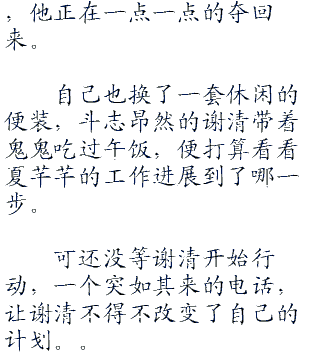 ，他正在一点一点的夺回
来。
自己也换了一套休闲的
便装，斗志昂然的谢清带着
鬼鬼吃过午饭，便打算看看
夏芊芊的工作进展到了哪一
步。
可还没等谢清开始行
动，一个突如其来的电话，
让谢清不得不改变了自己的
计划。。